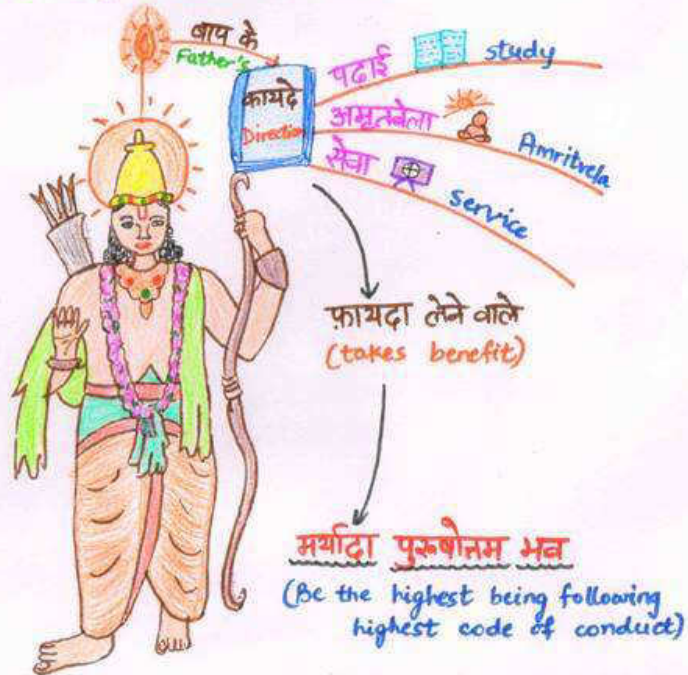 बाप के
Father's
कायदे
Direction
पढाई study
अमृतबेला Amritvela
सेवा service
फ़ायदा लेने वाले
(takes benefit)
मर्यादा पुरूषोत्तम भव
(Be the highest being following
highest code of conduct)